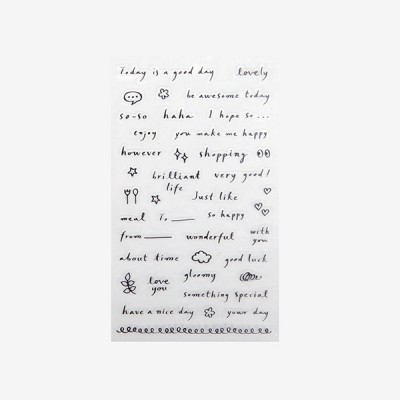 Today is a good day lovely
be awesome today
so-so haha I hope so ...
enjoy you make me happy
however shopping
brilliant very good!
life
Just like
meal To so happy
from wonderful with
you
about time good luck
gloomy
love
you
something special
have a nice day your day